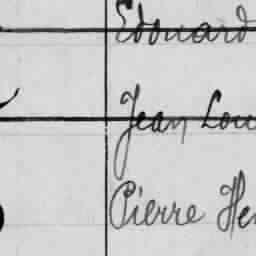 Edouard
Jean Lou
Pierre Hen